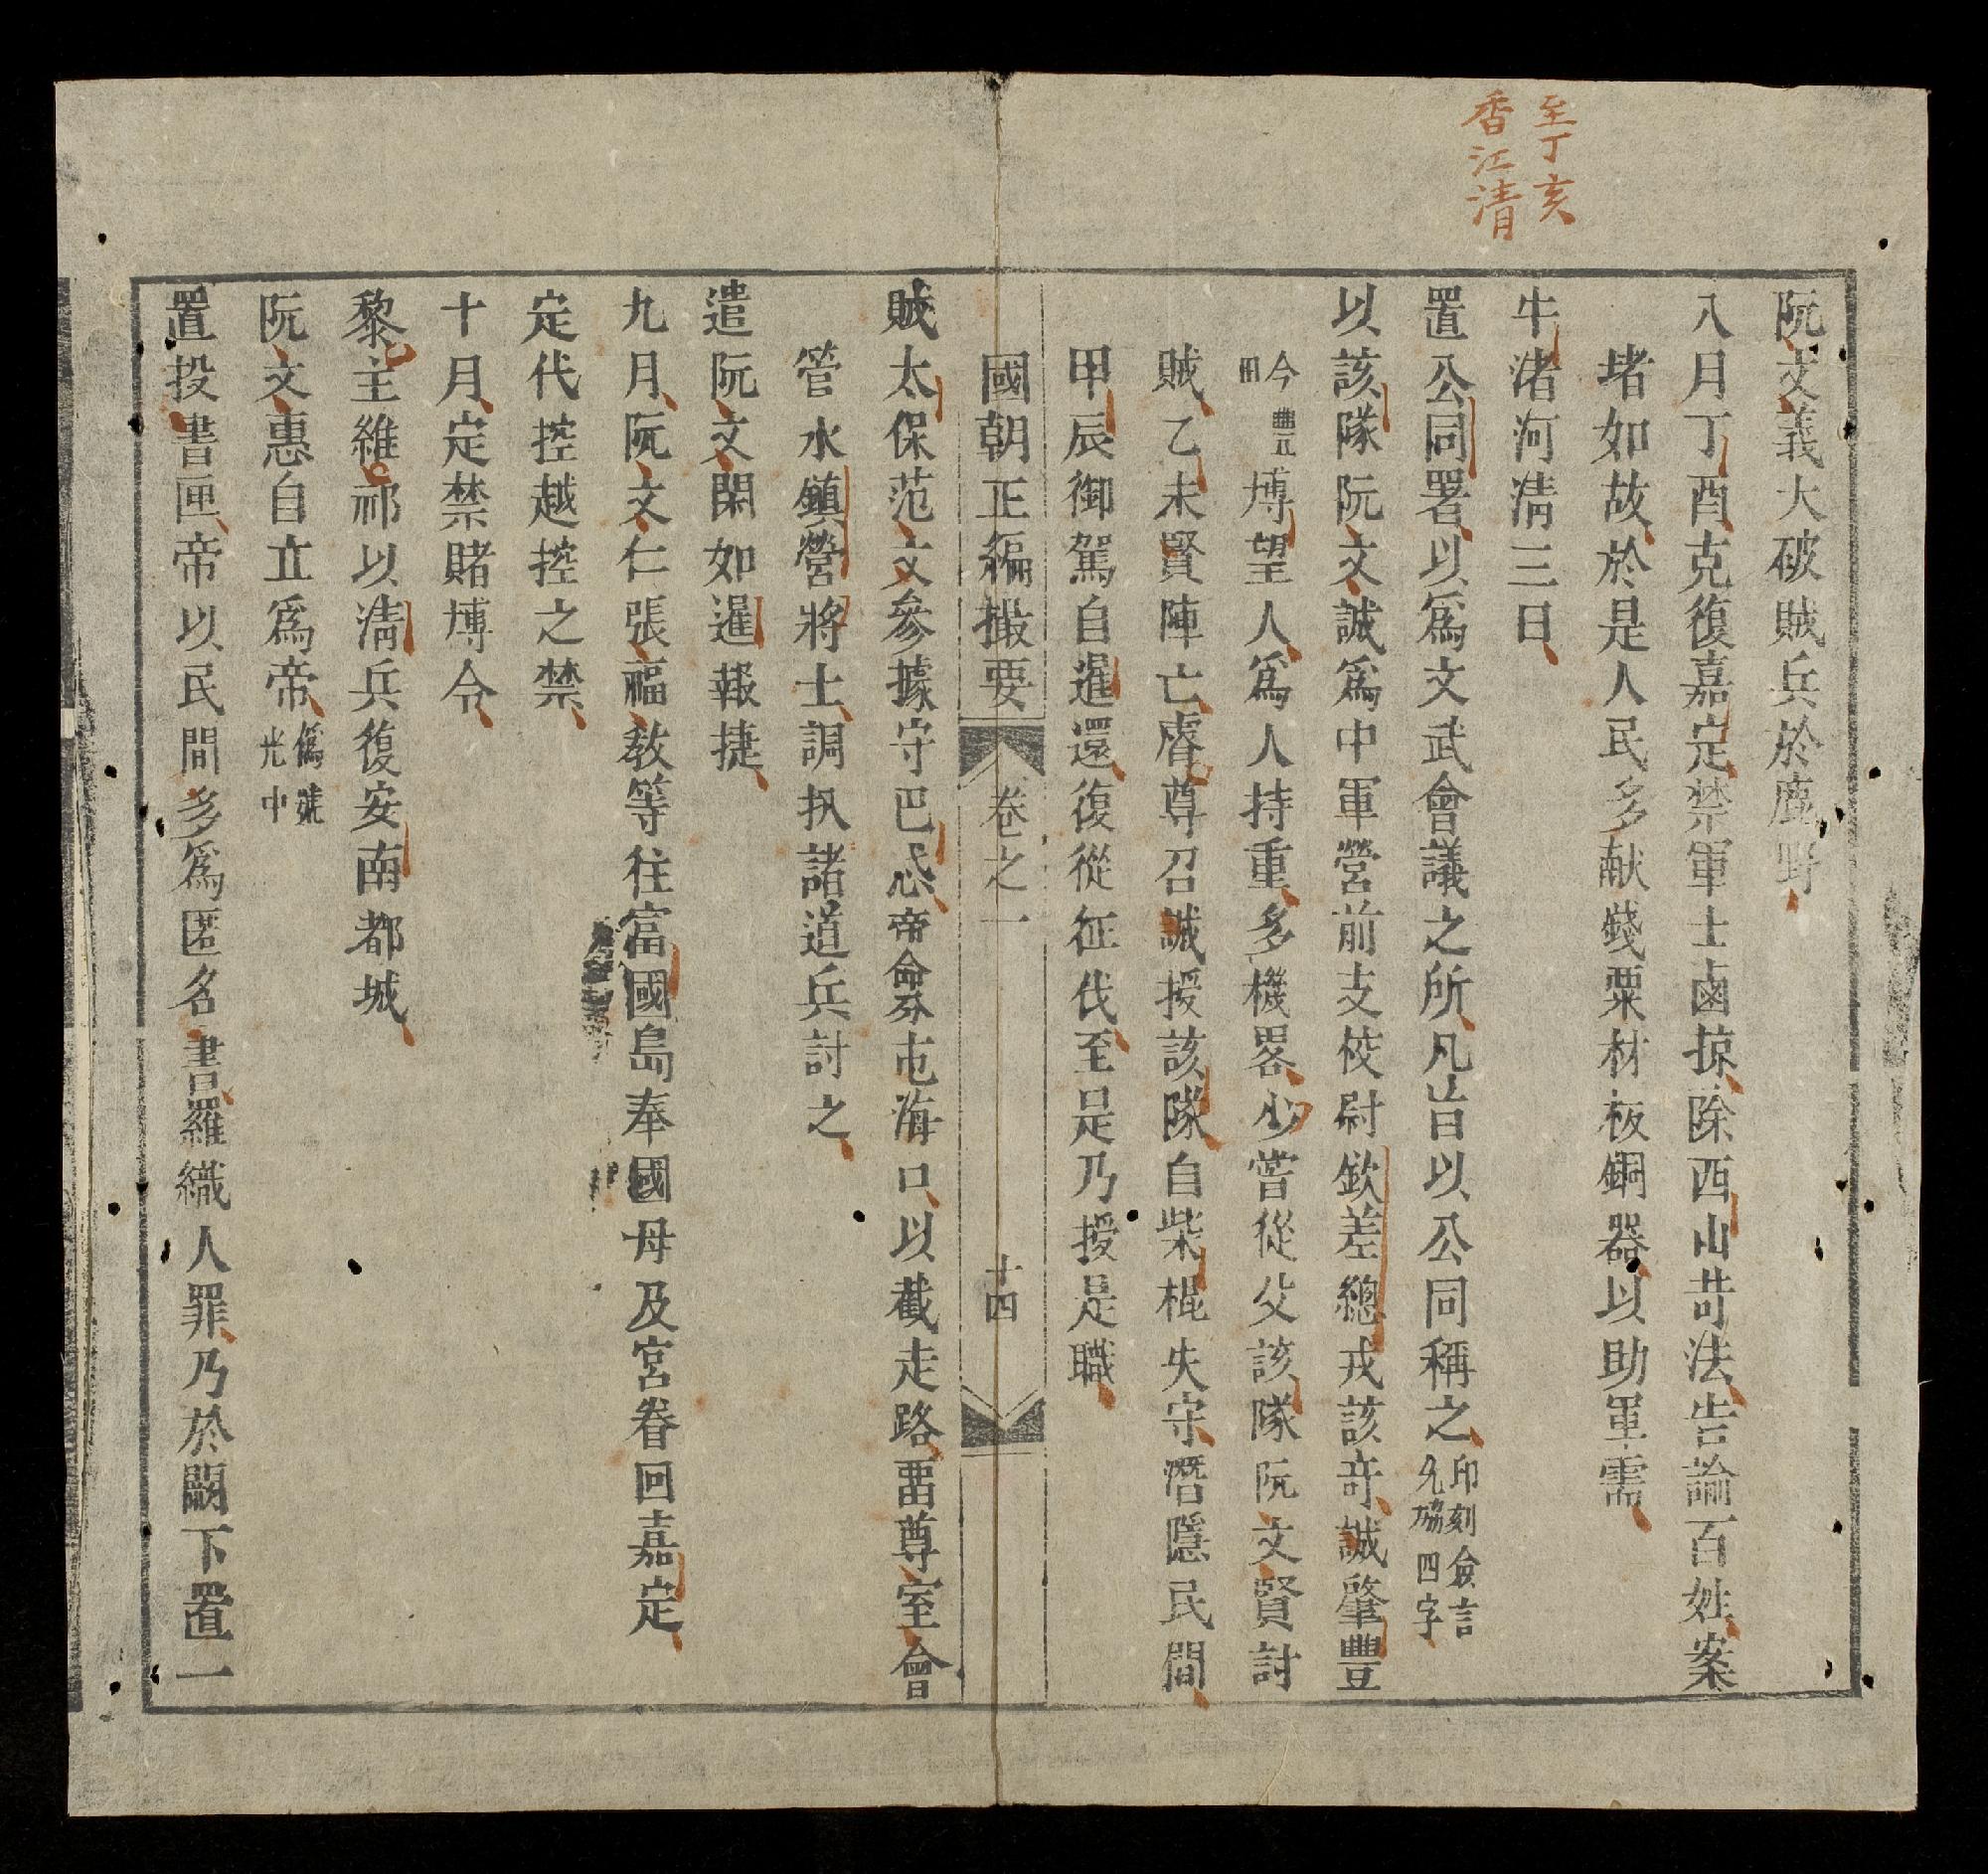 至丁亥
香江清
阮文義大破賊兵於鹿野
八月丁酉克復嘉定禁軍士鹵掠除西山苛法告諭百姓案
堵如故於是人民多献錢粟材板銅器以助軍需
牛渚河清三日
置公同署以爲文武會議之所凡旨以公同稱之印刻僉言
允協四字
以該隊阮文誠爲中軍營前支校尉欽差總戎該奇誠肇豐
今
博望人爲人持重多機畧少嘗從父該隊阮文賢討
賊乙未賢陣亡睿尊召誠授該隊自柴棍失守潛隱民間
甲辰御駕自暹還復從征伐至是乃授是職
國朝正編撮要 卷之一 十四
賊太保范文參據守巴忒帝命分屯海口以截走路畱尊室會
管水鎮營將士調扒諸道兵討之
遣阮文閑如暹報捷
九月阮文仁張福教等往富國島奉國母及宮眷回嘉定
定代控越控之禁
十月定禁賭博令
黎主維祁以淸兵復安南都城
阮文惠自立爲帝僞號
光中
置投書匣帝以民間多爲匿名書羅織人罪乃於闕下置一